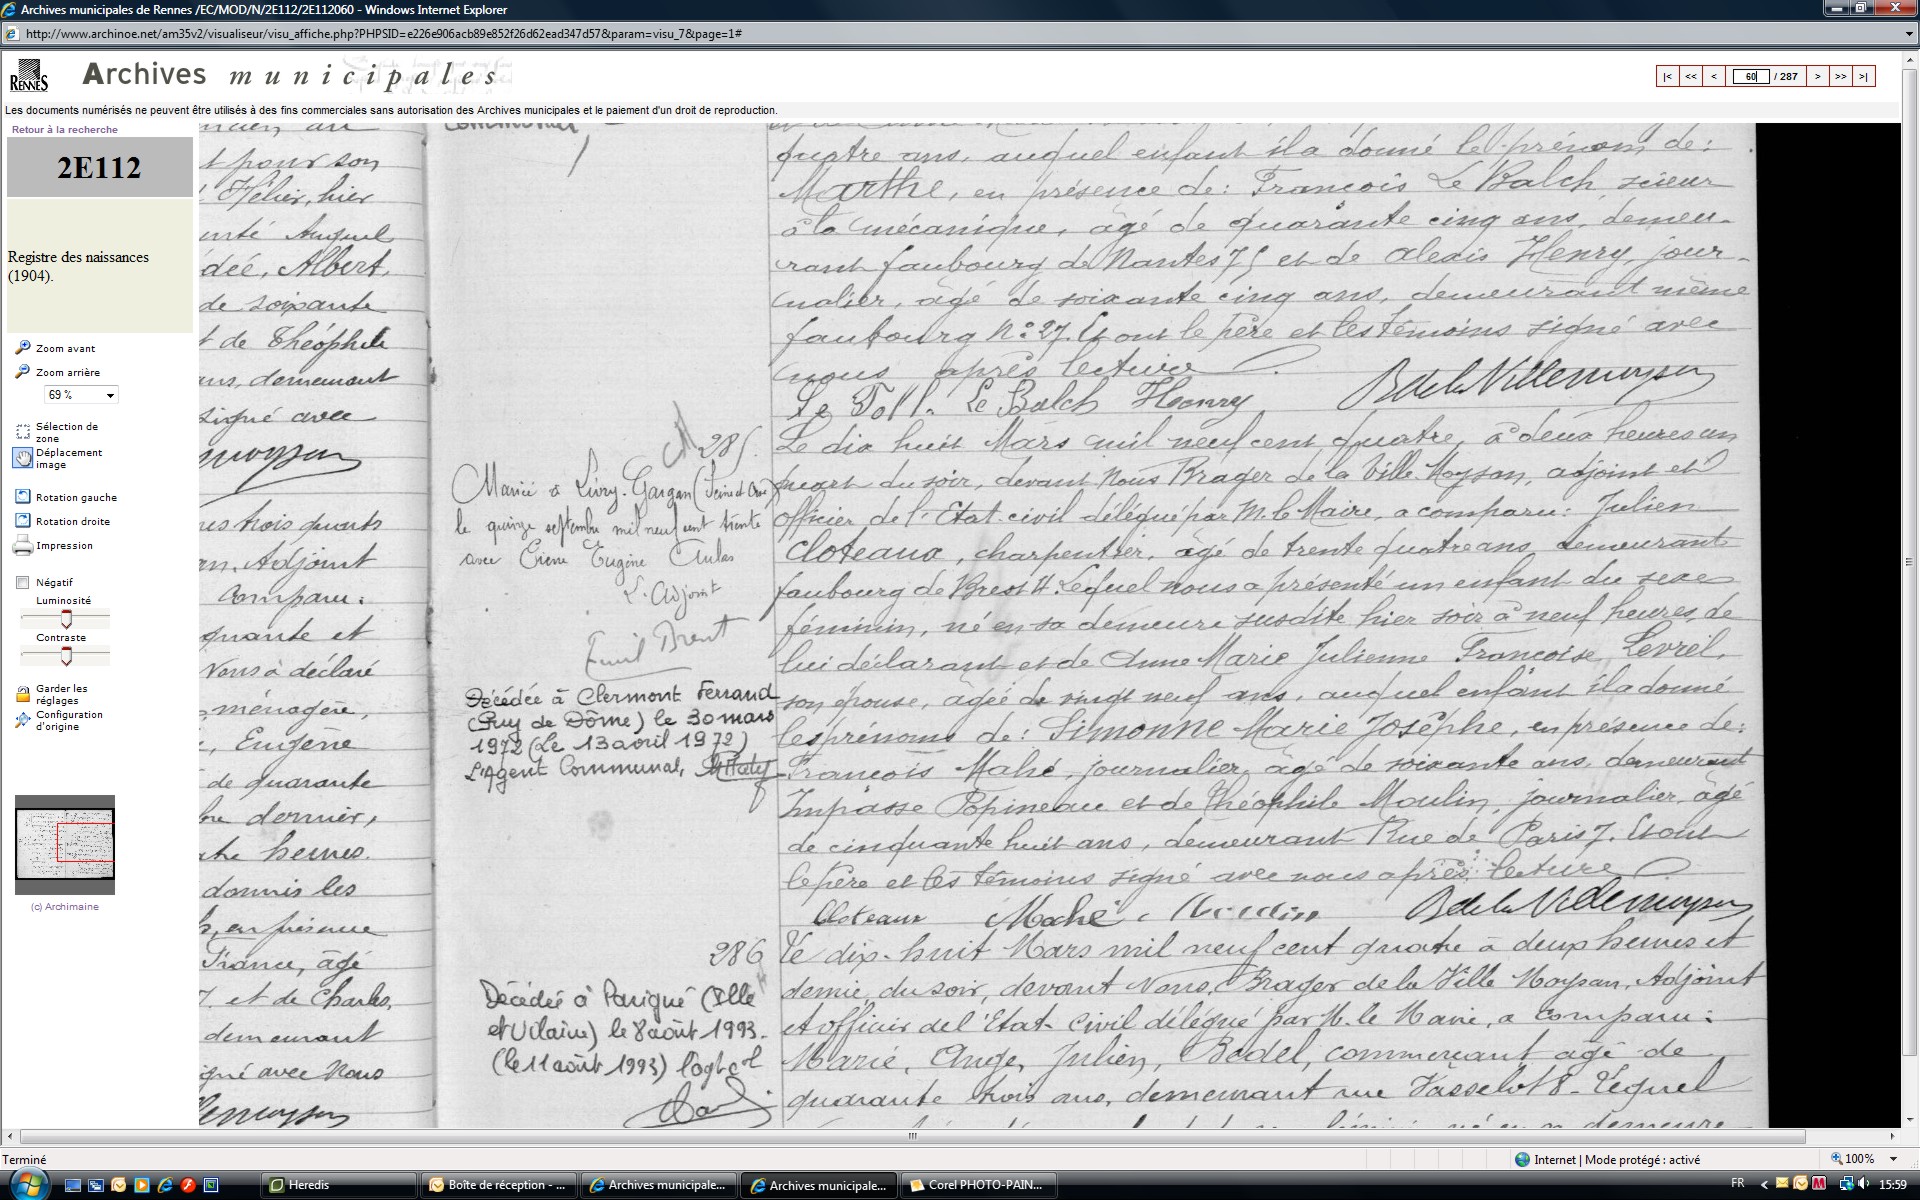 Archives municipales de Rennes /EC/MOD/N/2E112/2E112060 - Windows Internet Explorer
http://www.archinoe.net/am35v2/visualiseur/visu_affiche.php?PHPSID=e226e906acb89e852f26d62ead347d57&param=visu_7&page=1#
RENNES
Archives municipales
|< << < 60 / 287 > >> >|
Les documents numérisés ne peuvent être utilisés à des fins commerciales sans autorisation des Archives municipales et le paiement d'un droit de reproduction.
Retour à la recherche
2E112
Registre des naissances
(1904).
Zoom avant
Zoom arrière
69 %
Sélection de
zone
Déplacement
image
Rotation gauche
Rotation droite
Impression
Négatif
Luminosité
Contraste
Garder les
réglages
Configuration
d'origine
(c) Archimaine
t pour son
Hélier, hier
Auguel
dée, Albert,
de soixante
t de Théophile
ans, demeurant
signé avec
trois quarts
an, Adjoint
Comparu :
quante et
Nous a déclaré
ménagère,
Eugène
de quarante
dernier,
heures.
donnés les
en présence
France, âgé
7. et de Charles,
demeurant
igné avec Nous
quatre ans, auquel enfant il a donné le prénom de :
Marthe, en présence de : François Le Balch, scieur
à la mécanique, âgé de quarante cinq ans, demeu-
rant faubourg de Nantes 75 et de Alexis Henry, jour-
nalier, âgé de soixante cinq ans, demeurant même
faubourg N° 27. Et ont le Père et les témoins signé avec
nous après lecture.
Le Toll. Le Balch Henry B de la Villemoysan
285.
Le dix huit Mars mil neuf cent quatre, à deux heures un
quart du soir, devant Nous Brager de la Ville-Moysan, adjoint et
officier de l'Etat-civil délégué par M. le Maire, a comparu : Julien
Cloteaux, charpentier, âgé de trente quatre ans, demeurant
faubourg de Brest 4. Lequel nous a présenté un enfant du sexe
féminin, né en sa demeure susdite hier soir à neuf heures, de
lui déclarant et de Anne Marie Julienne Françoise Levrel,
son épouse, âgée de vingt neuf ans, auquel enfant il a donné
les prénoms de : Simonne Marie Josèphe, en présence de :
François Mahé, journalier, âgé de soixante ans, demeurant
Impasse Popineau et de Théophile Moulin, journalier, âgé
de cinquante huit ans, demeurant Rue de Paris 7. Et ont
le Père et les témoins signé avec nous après lecture
Cloteaux Mahé Moulin B de la Villemoysan
Mariée à Livry-Gargan (Seine et Oise)
le quinze septembre mil neuf cent trente
avec Pierre Eugène Aulas
L'Adjoint
Décédée à Clermont Ferrand
(Puy de Dôme) le 30 mars
1972 (Le 13 avril 1972)
L'Agent Communal,
286
Le dix-huit Mars mil neuf cent quatre à deux heures et
demie du soir, devant Nous, Brager de la Ville Moysan, Adjoint
et officier de l'Etat-Civil délégué par M. le Maire, a comparu :
Marie, Ange, Julien, Bedel, commerçant âgé de
quarante trois ans, demeurant rue Vasselot 8. Lequel
Décédée à Parigné (Ille
et Vilaine) le 8 août 1993.
(le 11 août 1993) l'agt cal
Terminé
Internet | Mode protégé : activé
100%
Heredis
Boîte de réception - ...
Archives municipale...
Archives municipale...
Corel PHOTO-PAIN...
FR
15:59